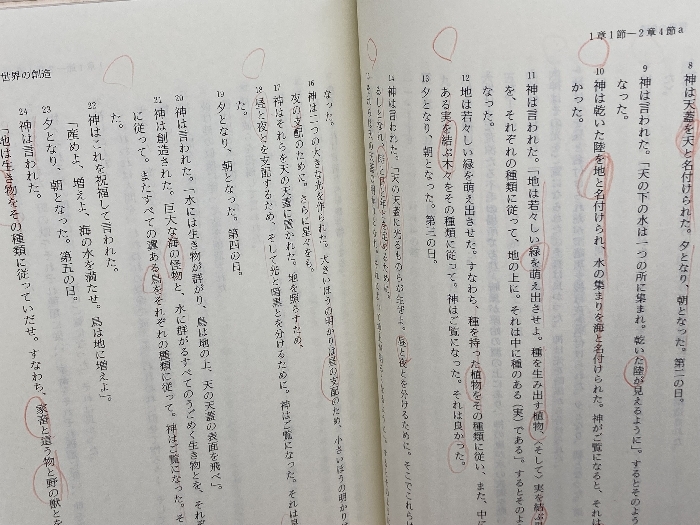 1章1節—2章4節a
8 神は天蓋を天と名付けられた。夕となり、朝となった。第二の日。
9 神は言われた。「天の下の水は一つの所に集まれ。乾いた陸が見えるように」。するとそのよう
なった。
10 神は乾いた陸を地と名付けられ、水の集まりを海と名付けられた。神がご覧になると、それは
かった。
11 神は言われた。「地は若々しい緑を萌え出させよ。種を生み出す植物、〈そして〉実を結ぶ
を、それぞれの種類に従って、地の上に。それは中に種のある〔実〕である」。するとそのよ
なった。
12 地は若々しい緑を萌え出させた。すなわち、種を持った植物をその種類に従い、また、中に
ある実を結ぶ木々をその種類に従って。神はご覧になった。それは良かった。
13 夕となり、朝となった。第三の日。
14 神は言われた。「天の天蓋に光るものらが生ぜよ。昼と夜とを分けるために。そこでこれらは
世界の創造
なった。
16 神は二つの大きな光を作られた。大きいほうの明かりは昼の支配のため、小さいほうの明かりは
夜の支配のために。さらに星々をも。
17 神はそれらを天の天蓋に置かれた。地を照らすため、
18 昼と夜とを支配するため、そして光と暗黒とを分けるために。神はご覧になった。それは良
た。
19 夕となり、朝となった。第四の日。
20 神は言われた。「水には生き物が群がり、鳥は地の上、天の天蓋の表面を飛べ」。
21 神は創造された。巨大な海の怪物と、水に群がるすべてのうごめく生き物とを、それぞ
に従って。またすべての翼ある鳥をそれぞれの種類に従って。神はご覧になった。そ
た。
22 神はこれを祝福して言われた。
「産めよ、増えよ、海の水を満たせ。鳥は地に増えよ」。
23 夕となり、朝となった。第五の日。
24 神は言われた。
「地は生き物をその種類に従っていだせ。すなわち、家畜と這う物と野の獣とを